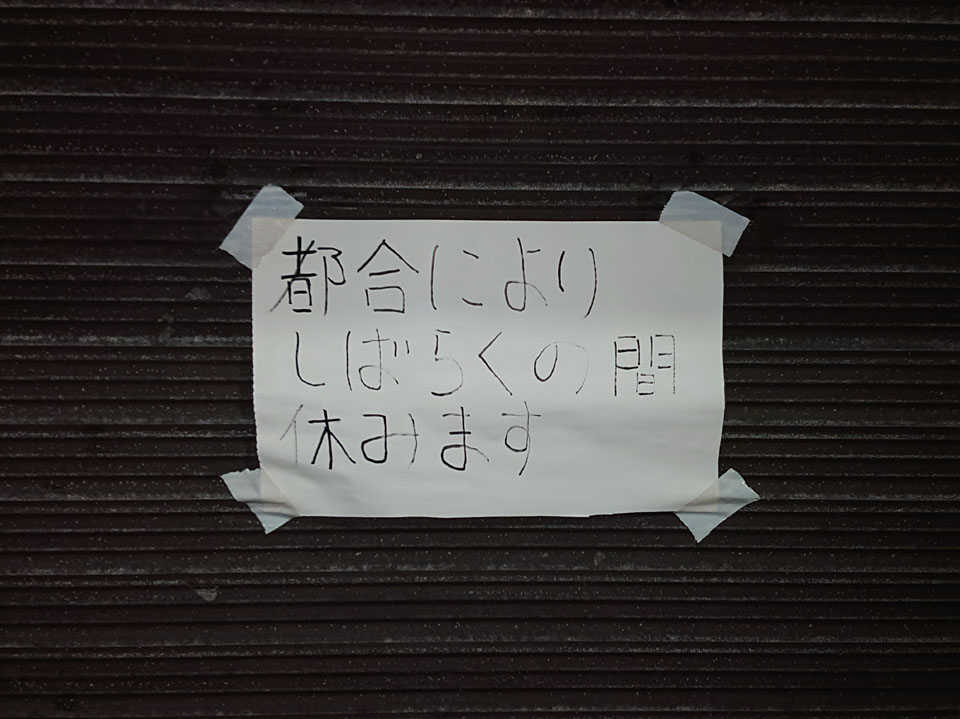 都合により
しばらくの間
休みます